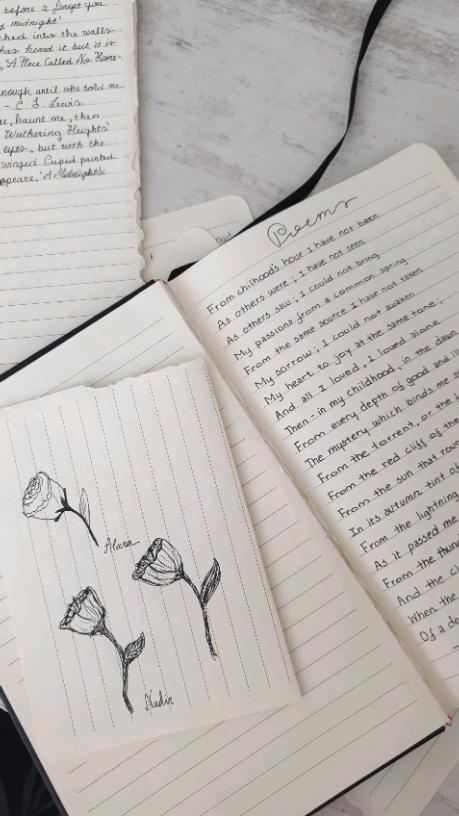 before I forget you
midnight'
ched into the walls
has heard it but is is
'A Place Called No Home-
nough until she told me
- C. S. Lewis
u, haunt me, then
Wuthering Heights'
eyes, but with the
winged Cupid painted
speare, 'A Midnight's
Poems
From chilhood's hour I have not been
As others were ; I have not seen
As others saw ; I could not bring
My passions from a common spring
From the same source I have not taken
My sorrow ; I could not awaken
My heart to joy at the same tone ;
And all I loved, I loved alone
Then - in my childhood, in the dawn
From every depth of good and ill
The mystery which binds me s
From the torrent, or the f
From the red cliff of the
From the sun that roun
In its autumn tint of
From the lightning
As it passed me
From the thun
And the cl
When the
Of a de
Alara
Nadir